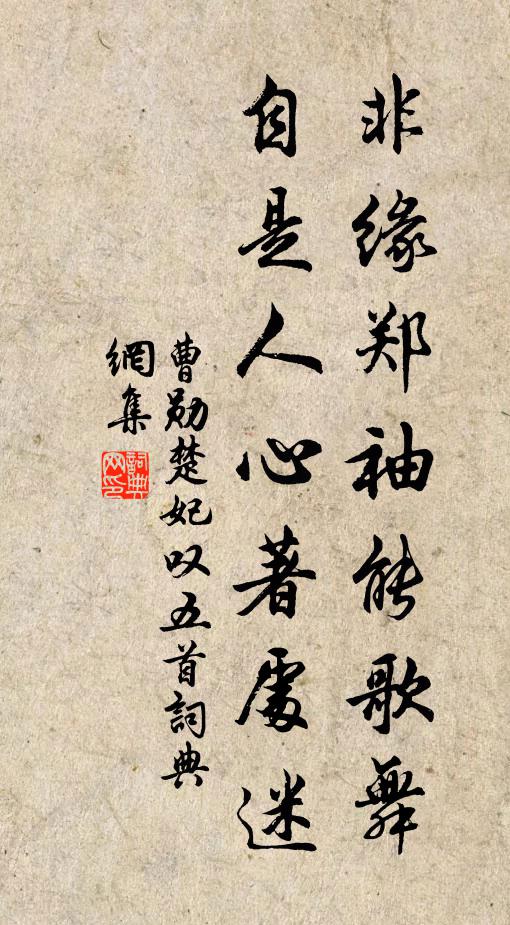 非缘郑袖能歌舞
自是人心著處迷
曹勋楚妃叹五首詞典
網集
詞典
网印